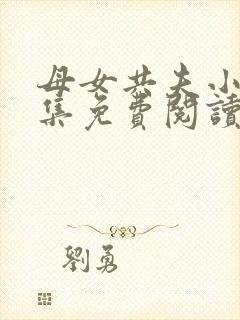 母女共夫小
集免費閱讀
劉勇